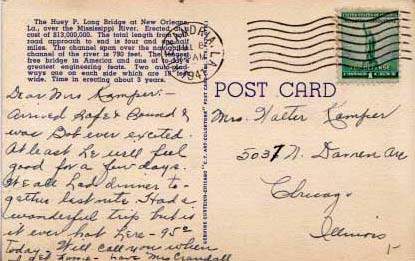 The Huey P. Long Bridge at New Orleans,
La., over the Mississippi River. Erected at a
cost of $13,000,000. The total length from rail-
road approach to end is four and one-half
miles. The channel span over the navigable
channel of the river is 790 feet. The longest
free bridge in America and one of today's
greatest engineering feats. Two auto drive-
ways one on each side which are 18 feet
wide. Time in erecting about 3 years.
LA.
AM
194
1 CENT
POST CARD
GENUINE CURTEICH-CHICAGO "C.T. ART-COLORTONE" POST CARD
Dear Mrs Kamper:-
Arrived Safe & Sound &
was Bob ever excited.
At least he will feel
good for a few days.
We all had dinner to-
gether last nite. Had a
wonderful trip but is
it ever hot here - 95°
today - Will call you when
I get home - Love Mrs Crandall
Mrs. Walter Kamper
5037 N. Damen Ave
Chicago
Illinois